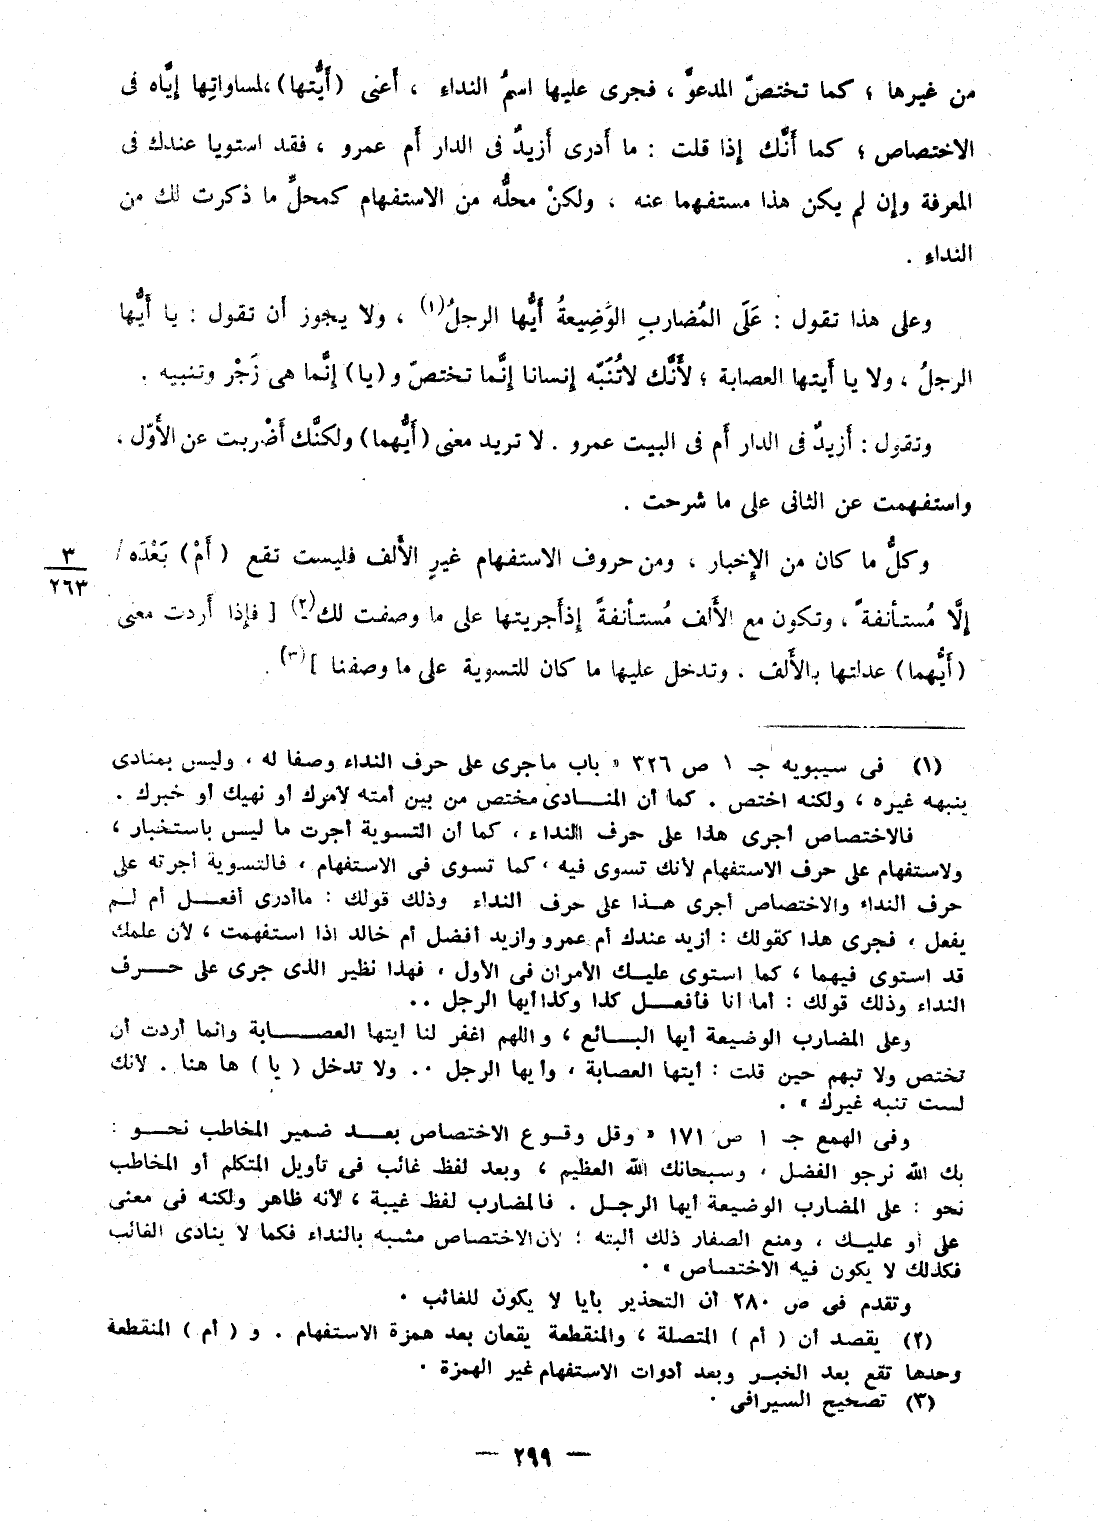 من غيرها ؛ كما تختصّ المدعوَّ ، فجرى عليها اسمُ النداء ، أَعنى (أَيَّتها) ،لمساواتِها إيَّاه فى
الاختصاص ؛ كما أَنَّك إِذا قلت : ما أَدرى أَزيدٌ فى الدار أَم عمرو ، فقد استويا عندك فى
المعرفة وإِن لم يكن هذا مستفهما عنه ، ولكنْ محلُّه من الاستفهام كمحلِّ ما ذكرت لك من
النداءِ .
وعلى هذا تقول : عَلَى المُضاربِ الوَضِيعةُ أَيُّها الرجلُ(١) ، ولا يجوز أَن تقول : يا أَيُّها
الرجلُ ، ولا يا أَيتها العصابة ؛ لأَنَّك لاتُنَبِّه إِنسانا إِنَّما تختصّ و(يا) إِنَّما هى زَجْر وتنبيه .
وتقول : أَزيدٌ فى الدار أَم فى البيت عمرو . لا تريد معنى (أَيُّهما) ولكنَّك أَضْربت عن الأَوّل ،
واستفهمت عن الثانى على ما شرحت .
وكلُّ ما كان من الإِخبار ، ومن حروف الاستفهام غيرِ الأَلف فليست تقع (أَمْ) بَعْدَه/
٣
٢٦٣
إِلَّا مُستأنفةً ، وتكون مع الأَلف مُستأنفةً إِذأَجريتها على ما وصفت لك(٢) [ فإِذا أَردت معنى
(أَيُّهما) عدلتها بالأَلف . وتدخل عليها ما كان للتسوية على ما وصفنا ](٣) .
(١) فى سيبويه جـ ١ ص ٣٢٦ « باب ماجرى على حرف النداء وصفا له ، وليس بمنادى
ينبهه غيره ، ولكنه اختص . كما أن المنادى مختص من بين أمته لأمرك أو نهيك أو خبرك .
فالاختصاص أجرى هذا على حرف النداء ، كما أن التسوية أجرت ما ليس باستخبار ،
ولاستفهام على حرف الاستفهام لأنك تسوى فيه ، كما تسوى فى الاستفهام ، فالتسوية أجرته على
حرف النداء والاختصاص أجرى هذا على حرف النداء وذلك قولك : ماأدرى أفعل أم لم
يفعل ، فجرى هذا كقولك : أزيد عندك أم عمرو وأزيد أفضل أم خالد اذا استفهمت ، لأن علمك
قد استوى فيهما ، كما استوى عليك الأمران فى الأول ، فهذا نظير الذى جرى على حرف
النداء وذلك قولك : أما أنا فأفعل كذا وكذا أيها الرجل ..
وعلى المضارب الوضيعة أيها البائع ، واللهم اغفر لنا أيتها العصابة وانما أردت أن
تختص ولا تبهم حين قلت : أيتها العصابة ، وأيها الرجل .. ولا تدخل ( يا ) ها هنا . لأنك
لست تنبه غيرك » .
وفى الهمع جـ ١ ص ١٧١ « وقل وقوع الاختصاص بعد ضمير المخاطب نحو :
بك الله نرجو الفضل ، وسبحانك الله العظيم ، وبعد لفظ غائب فى تأويل المتكلم أو المخاطب
نحو : على المضارب الوضيعة أيها الرجل . فالمضارب لفظ غيبة ، لأنه ظاهر ولكنه فى معنى
على أو عليك ، ومنع الصفار ذلك ألبته ؛ لأن الاختصاص مشبه بالنداء فكما لا ينادى الغائب
فكذلك لا يكون فيه الاختصاص » .
وتقدم فى ص ٢٨٠ أن التحذير بأيا لا يكون للغائب .
(٢) يقصد أن ( أم ) المتصلة ، والمنقطعة يقعان بعد همزة الاستفهام . و ( أم ) المنقطعة
وحدها تقع بعد الخبر وبعد أدوات الاستفهام غير الهمزة .
(٣) تصحيح السيرافى .
— ٢٩٩ —